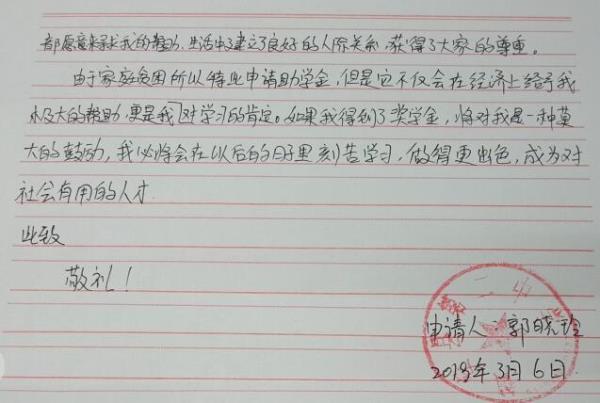 都愿意来寻求我的帮助。生活中建立了良好的人际关系,获得了大家的尊重。
由于家庭贫困所以特此申请助学金,但是它不仅会在经济上给予我
极大的帮助,更是我对学习的肯定。如果我得到了奖学金,将对我是一种莫
大的鼓励,我必将会在以后的日子里刻苦学习,做得更出色,成为对
社会有用的人才.
此致
敬礼!
二 中
申请人:郭晓玲
2019年3月6日